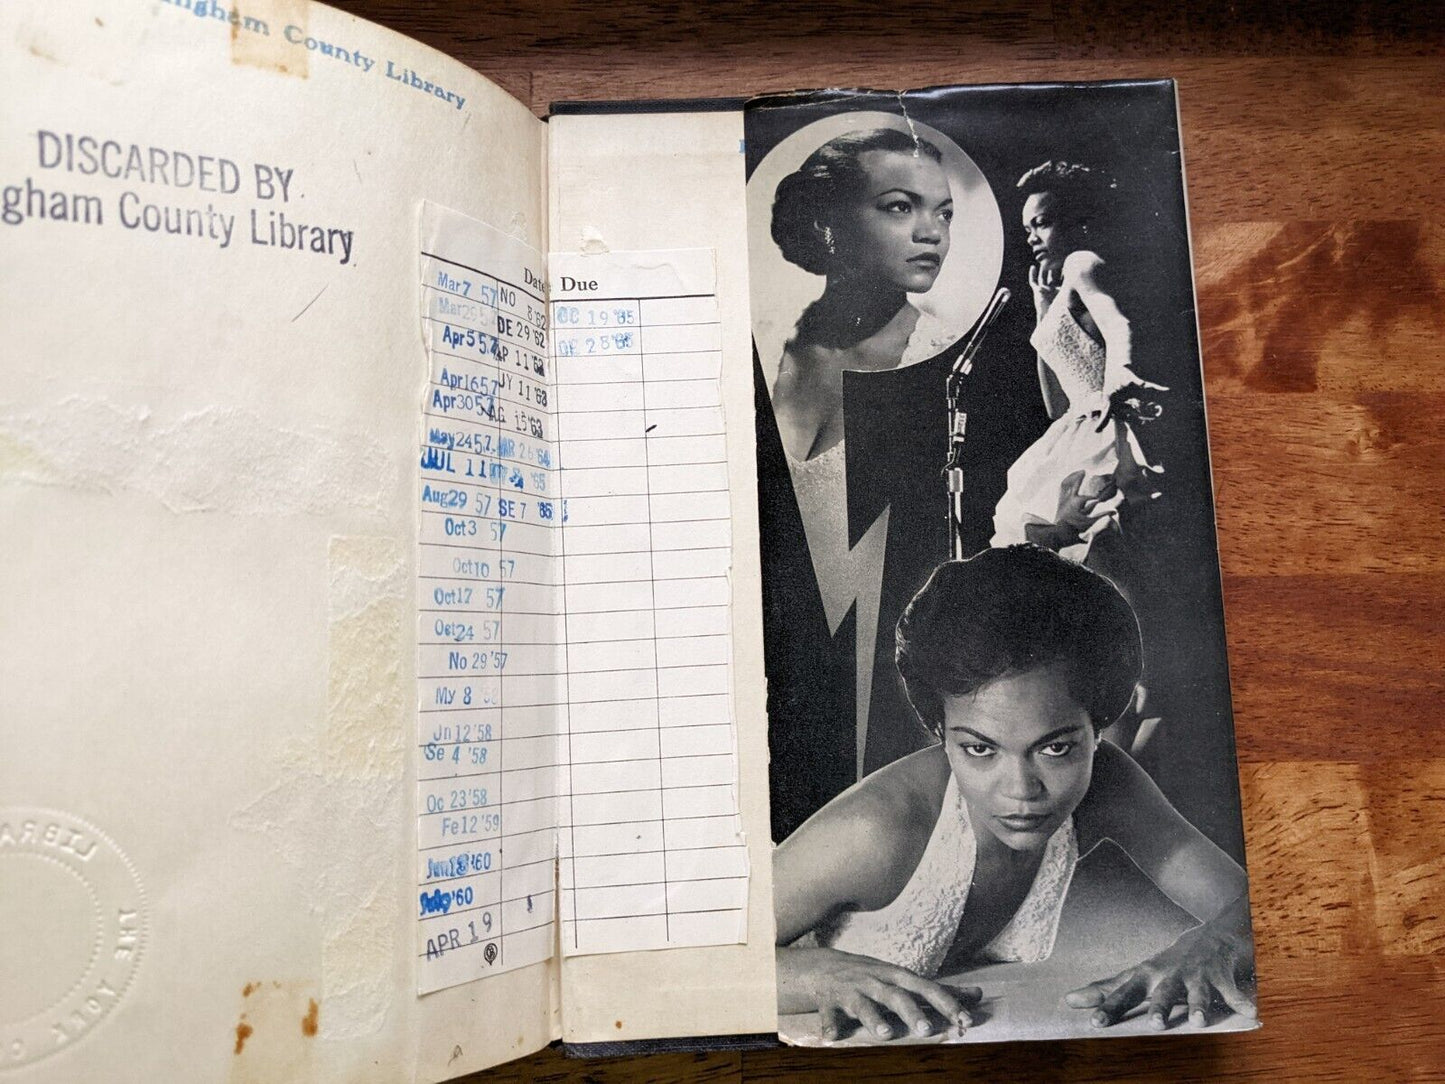 County Library
DISCARDED BY
gham County Library
Date Due
Mar 7 57
NO 8 '62
OC 19 '65
Mar 26 57
DE 29 '62
DE 28 '65
Apr 5 57
AP 11 '63
Apr 16 57
JY 11 '63
Apr 30 57
AG 15 '63
May 24 57
MR 26 '64
JUL 11
'65
Aug 29 57
SE 7 '65
Oct 3 57
Oct 10 57
Oct 17 57
Oct 24 57
No 29 '57
My 8
Jn 12 '58
Se 4 '58
Oc 23 '58
Fe 12 '59
'60
'60
APR 19